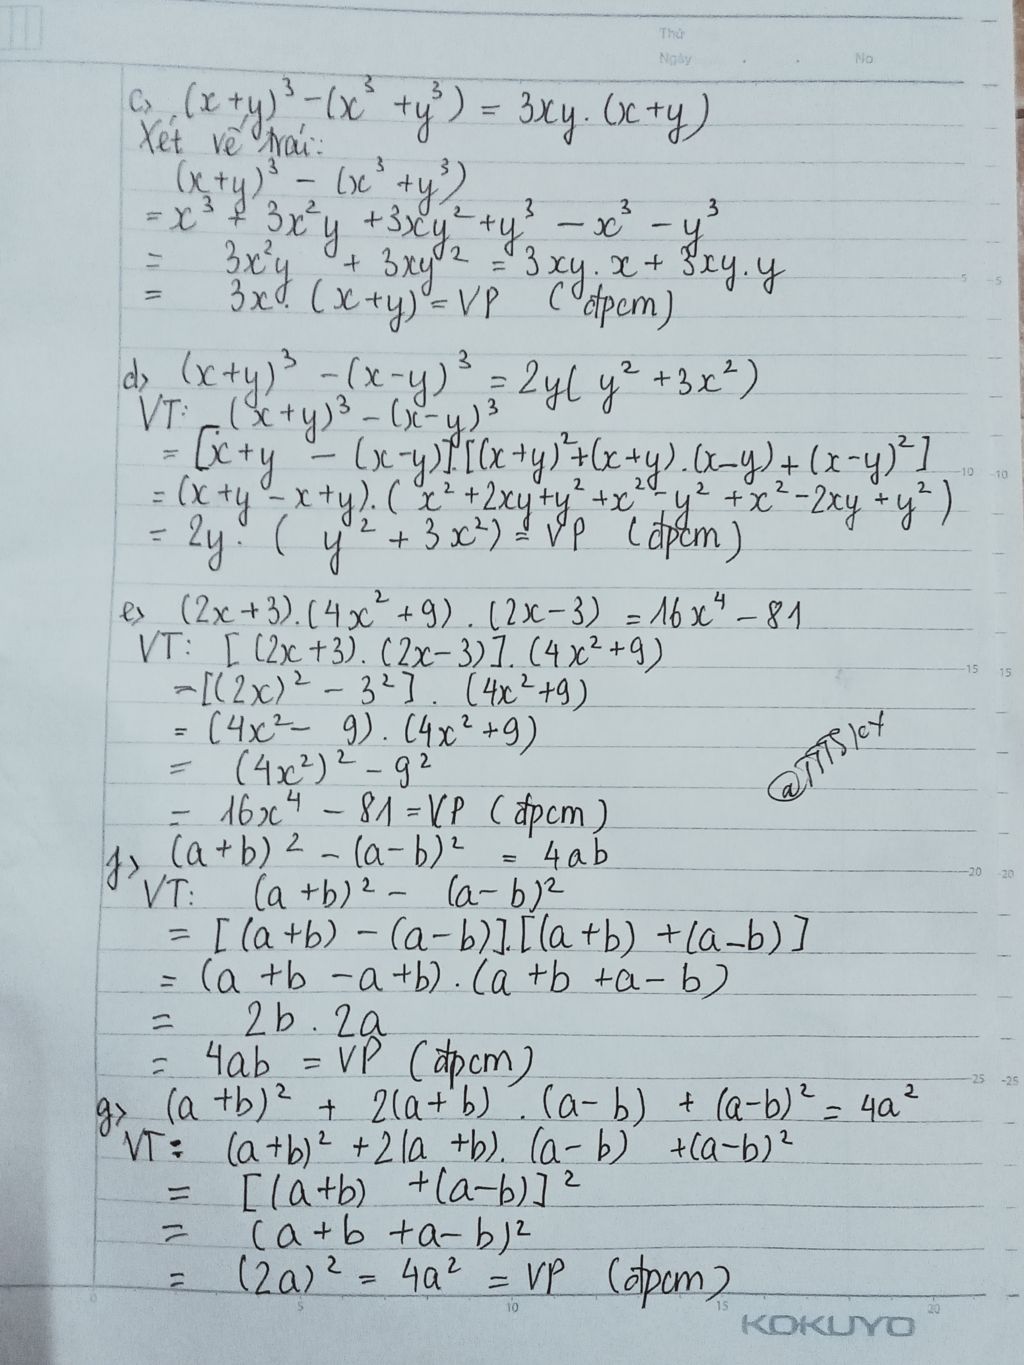 Thứ
Ngày . . No
c> (x+y)³ - (x³ + y³) = 3xy . (x+y)
Xét vế trái:
(x+y)³ - (x³ + y³)
= x³ + 3x²y + 3xy² + y³ - x³ - y³
= 3x²y + 3xy² = 3xy . x + 3xy . y
= 3x . (x+y) = VP (đpcm)
d> (x+y)³ - (x-y)³ = 2y( y² + 3x²)
VT: (x+y)³ - (x-y)³
= [x+y - (x-y)] . [(x+y)² + (x+y) . (x-y) + (x-y)²]
= (x+y - x+y) . ( x² + 2xy + y² + x² - y² + x² - 2xy + y² )
= 2y . ( y² + 3x²) = VP (đpcm)
e> (2x+3) . (4x² + 9) . (2x-3) = 16x⁴ - 81
VT: [ (2x+3) . (2x-3)] . (4x²+9)
= [(2x)² - 3²] . (4x²+9)
= (4x² - 9) . (4x²+9)
= (4x²)² - 9²
= 16x⁴ - 81 = VP (đpcm)
f> (a+b)² - (a-b)² = 4ab
VT: (a+b)² - (a-b)²
= [(a+b) - (a-b)] . [(a+b) + (a-b)]
= (a+b - a+b) . (a+b + a-b)
= 2b . 2a
= 4ab = VP (đpcm)
g> (a+b)² + 2(a+b) . (a-b) + (a-b)² = 4a²
VT: (a+b)² + 2(a+b) . (a-b) + (a-b)²
= [(a+b) + (a-b)]²
= (a+b + a-b)²
= (2a)² = 4a² = VP (đpcm)
0 5 10 15 20
KOKUYO
5 5
10 10
15 15
20 20
25 25